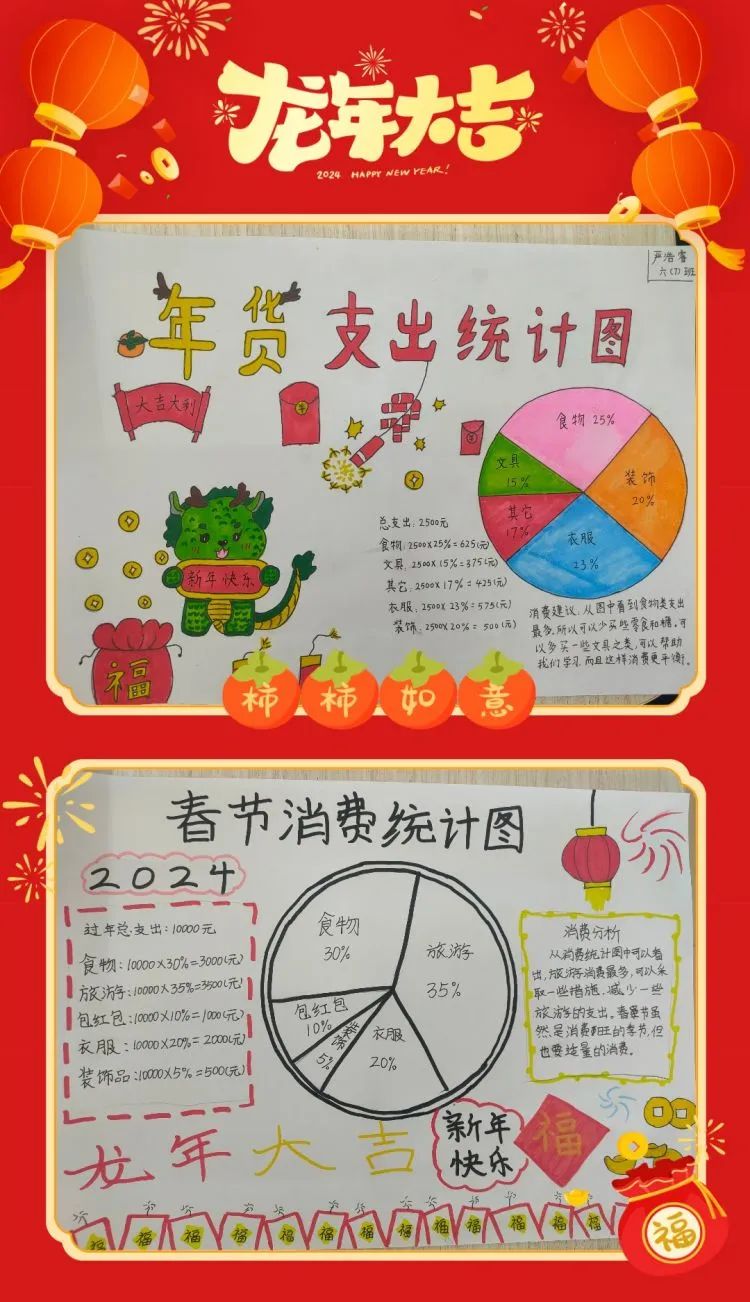 龙年大吉
2024 HAPPY NEW YEAR!
严浩睿
六(7)班
年货支出统计图
大吉大利
食物 25%
装饰
20%
文具
15%
其它
17%
衣服
23%
新年快乐
福
总支出:2500元
食物:2500×25%=625(元)
文具:2500×15%=375(元)
其它:2500×17%=425(元)
衣服:2500×23%=575(元)
装饰:2500×20%=500(元)
消费建议:从图中看到食物类支出
最多,所以可以少买些零食和糖。可
以多买一些文具之类,可以帮助
我们学习,而且这样消费更平衡。
柿柿如意
春节消费统计图
2024
过年总支出:10000元
食物:10000×30%=3000(元)
旅游:10000×35%=3500(元)
包红包:10000×10%=1000(元)
衣服:10000×20%=2000(元)
装饰品:10000×5%=500(元)
食物
30%
旅游
35%
包红包
10%
5%
衣服
20%
消费分析
从消费统计图中可以看
出,旅游消费最多,可以采
取一些措施,减少一些
旅游的支出。春节虽
然是消费旺的季节,但
也要适量的消费。
龙年大吉
新年
快乐
福
福 福 福 福 福 福 福 福 福 福 福 福 福
福